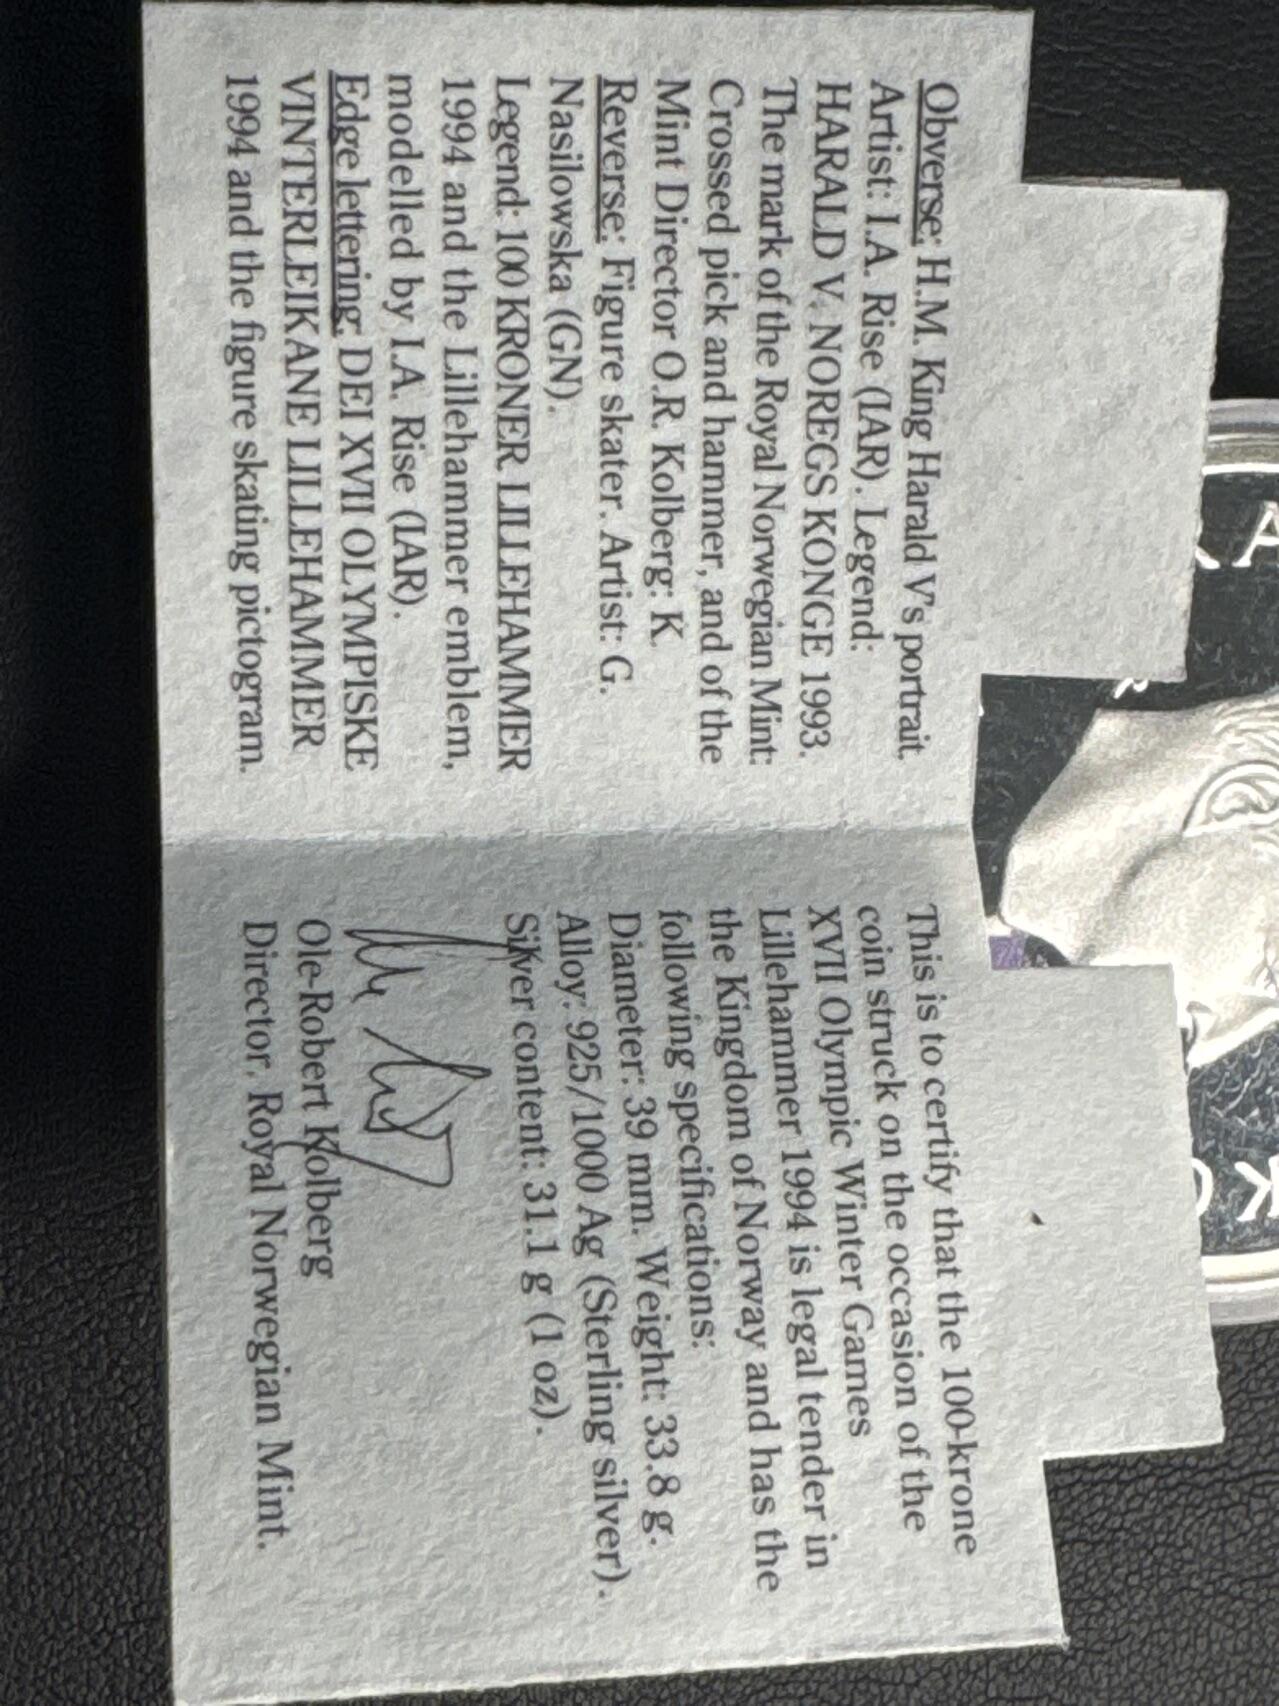 Obverse: H.M. King Harald V's portrait.
Artist: I.A. Rise (IAR). Legend:
HARALD V. NOREGS KONGE 1993.
The mark of the Royal Norwegian Mint:
Crossed pick and hammer, and of the
Mint Director O.R. Kolberg: K.
Reverse: Figure skater. Artist: G.
Nasilowska (GN).
Legend: 100 KRONER LILLEHAMMER
1994 and the Lillehammer emblem,
modelled by I.A. Rise (IAR).
Edge lettering: DEI XVII OLYMPISKE
VINTERLEIKANE LILLEHAMMER
1994 and the figure skating pictogram.
This is to certify that the 100-krone
coin struck on the occasion of the
XVII Olympic Winter Games
Lillehammer 1994 is legal tender in
the Kingdom of Norway and has the
following specifications:
Diameter: 39 mm. Weight: 33.8 g.
Alloy: 925/1000 Ag (Sterling silver).
Silver content: 31.1 g (1 oz).
Ole-Robert Kolberg
Director, Royal Norwegian Mint.